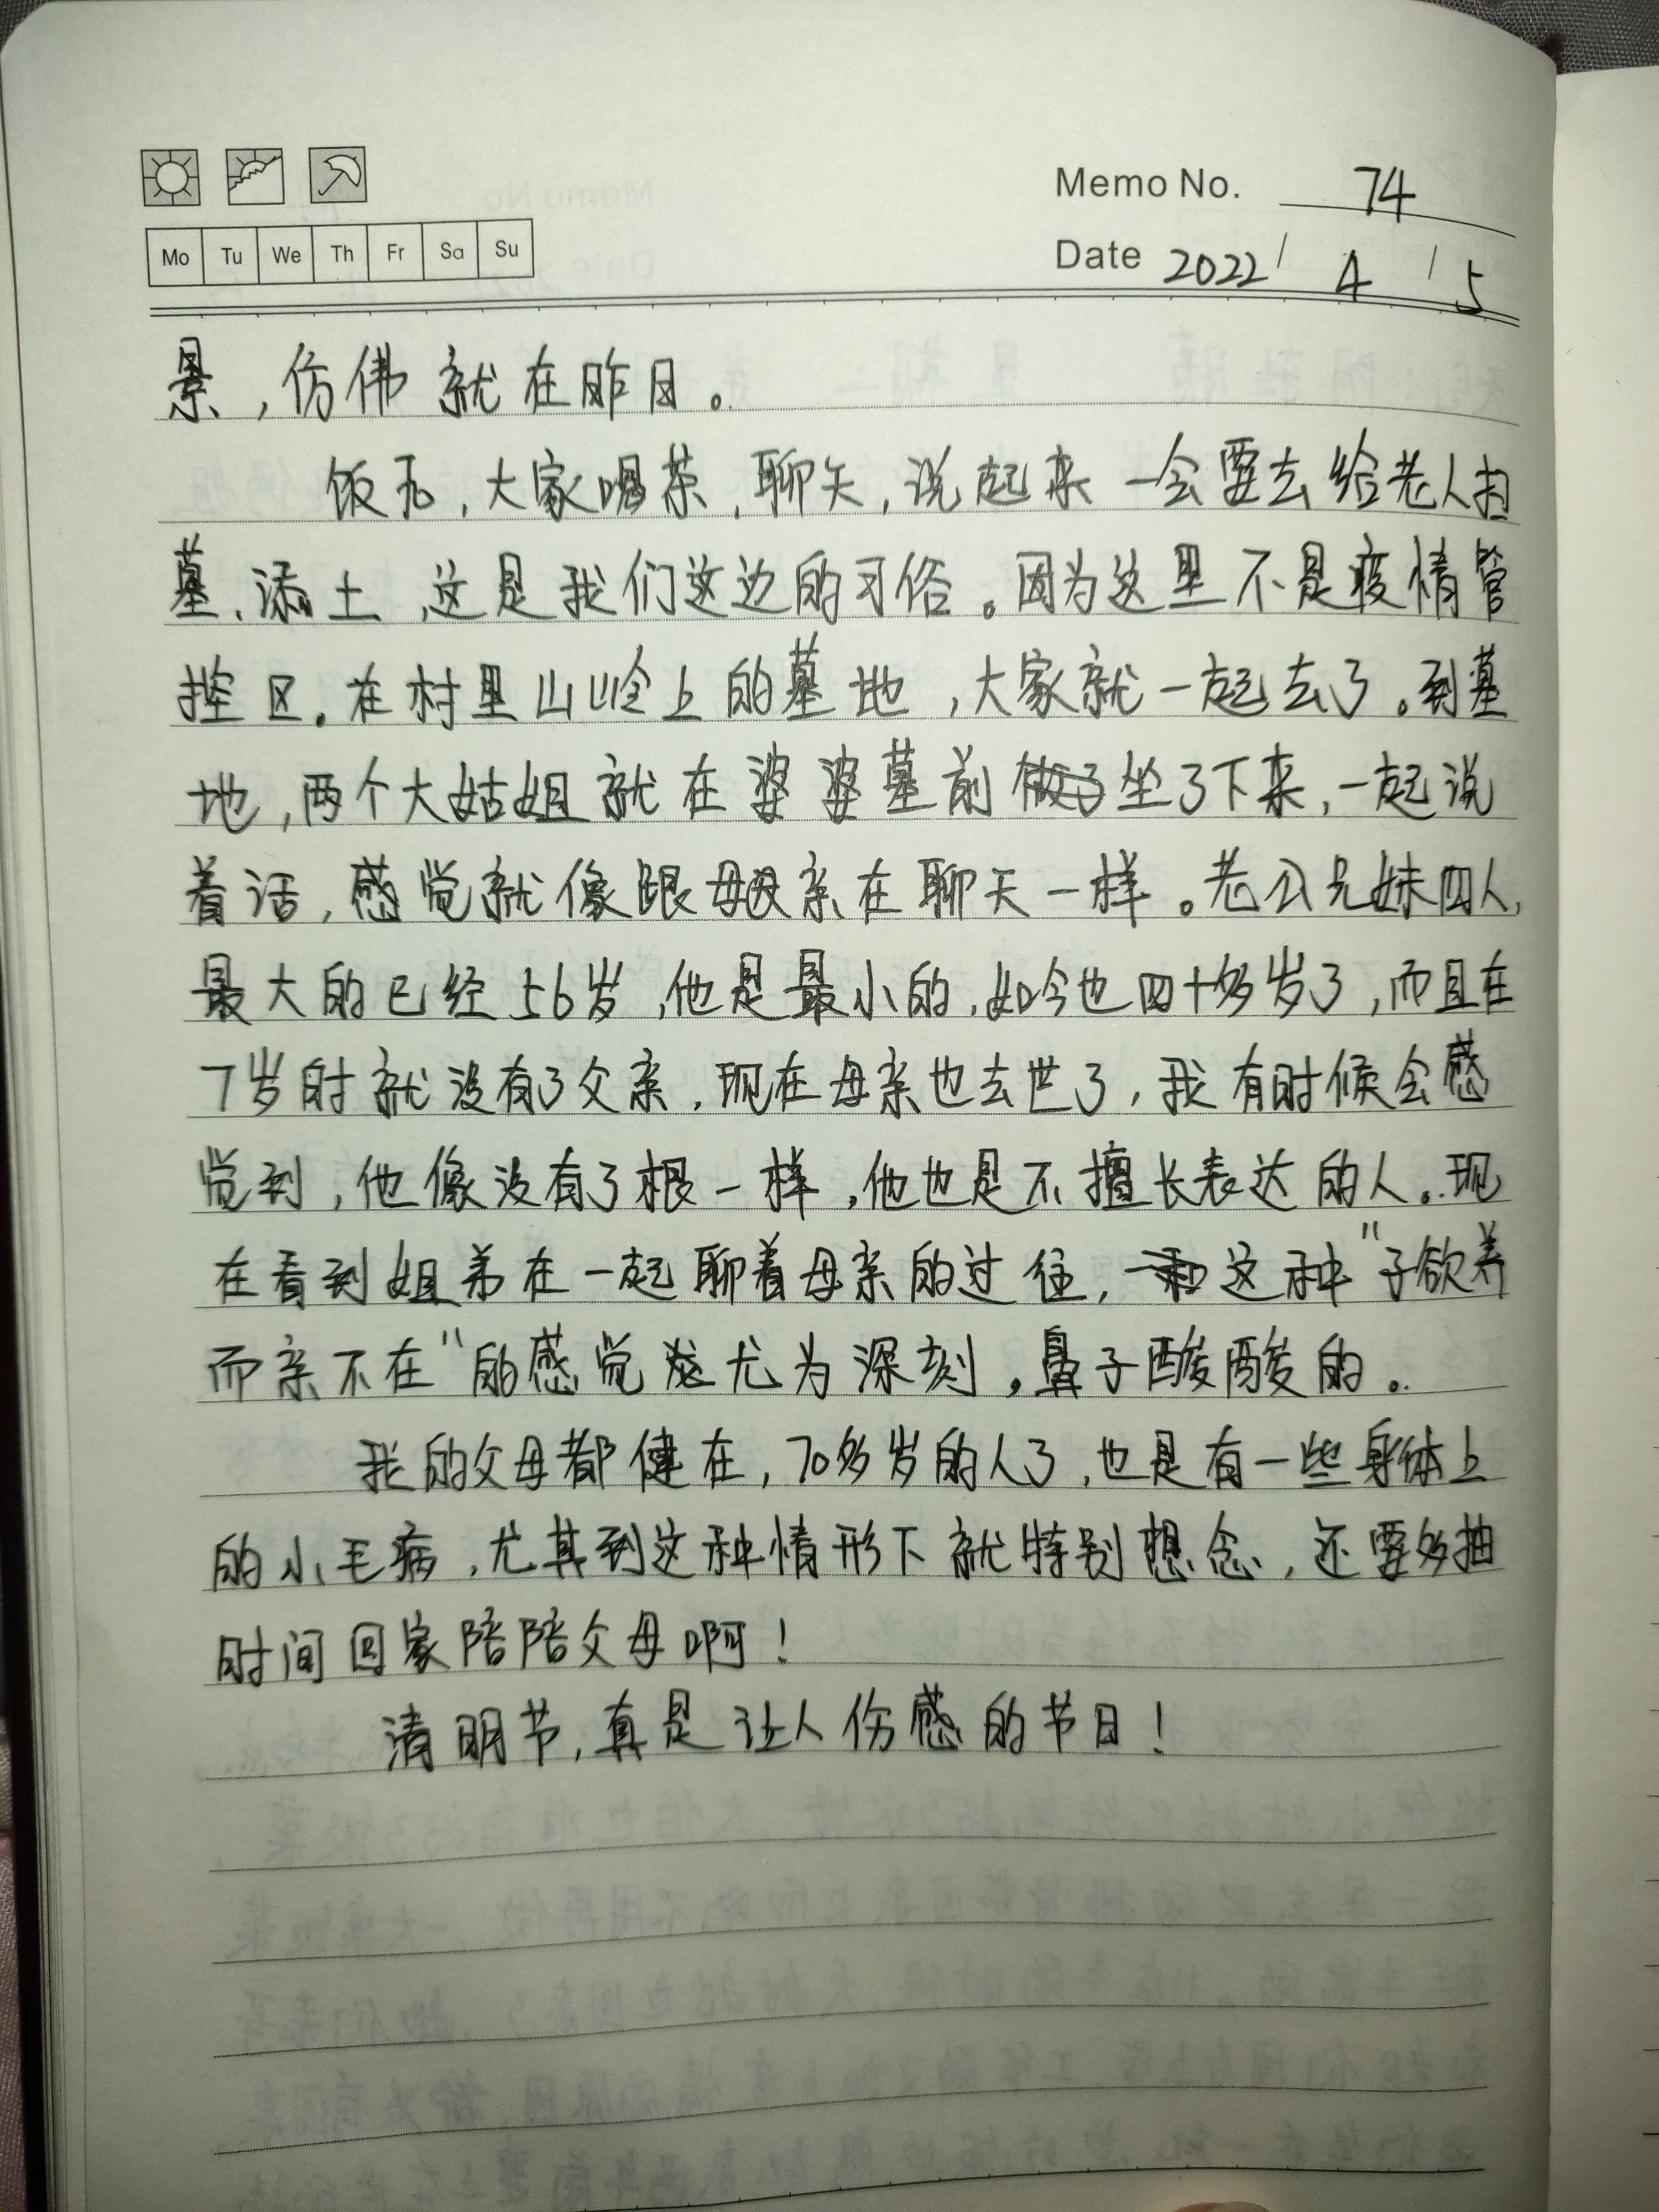 Memo No. 74
Mo Tu We Th Fr Sa Su
Date 2022 / 4 / 5
景，仿佛就在昨日。
饭后，大家喝茶，聊天，说起来一会要去给老人扫
墓、添土，这是我们这边的习俗。因为这里不是疫情管
控区。在村里山岭上的墓地，大家就一起去了。到墓
地，两个大姑姐就在婆婆墓前坐了下来，一起说
着话，感觉就像跟母亲在聊天一样。老公兄妹四人，
最大的已经56岁，他是最小的，如今也四十多岁了，而且在
7岁时就没有了父亲，现在母亲也去世了，我有时候会感
觉到，他像没有了根一样，他也是不擅长表达的人。现
在看到姐弟在一起聊着母亲的过往，这种"子欲养
而亲不在"的感觉尤为深刻，鼻子酸酸的。
我的父母都健在，70多岁的人了，也是有一些身体上
的小毛病，尤其到这种情形下就特别想念，还要多抽
时间回家陪陪父母啊！
清明节，真是让人伤感的节日！